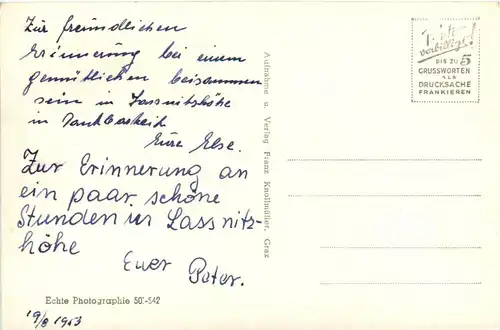 Zur freundlichen
Erinnerung bei einem
gemütlichen beisammen
sein in Lassnitzhöhe
in Dankbarkeit
Eure Else.
Zur Erinnerung an
ein paar schöne
Stunden in Lassnitz-
höhe
Euer Peter.
Echte Photographie 50-542
19/8 1953
Aufnahme u. Verlag Franz Knollmüller, Graz
verbilligt!
BIS ZU 5
GRUSSWORTEN
ALS
DRUCKSACHE
FRANKIEREN